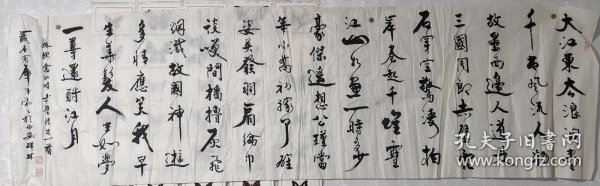 大江東去浪淘尽
千古風流人物
故壘西邊人道是
三國周郎赤壁乱
石穿空驚濤拍
岸卷起千堆雪
江山如畫一時多少
豪傑遙想公瑾當
年小喬初嫁了雄
姿英發羽扇綸巾
談笑間檣櫓灰飛
烟滅故國神遊
多情應笑我早
生華髮人生如夢
一尊還酹江月
孔夫子旧书网
book.kongfz.com